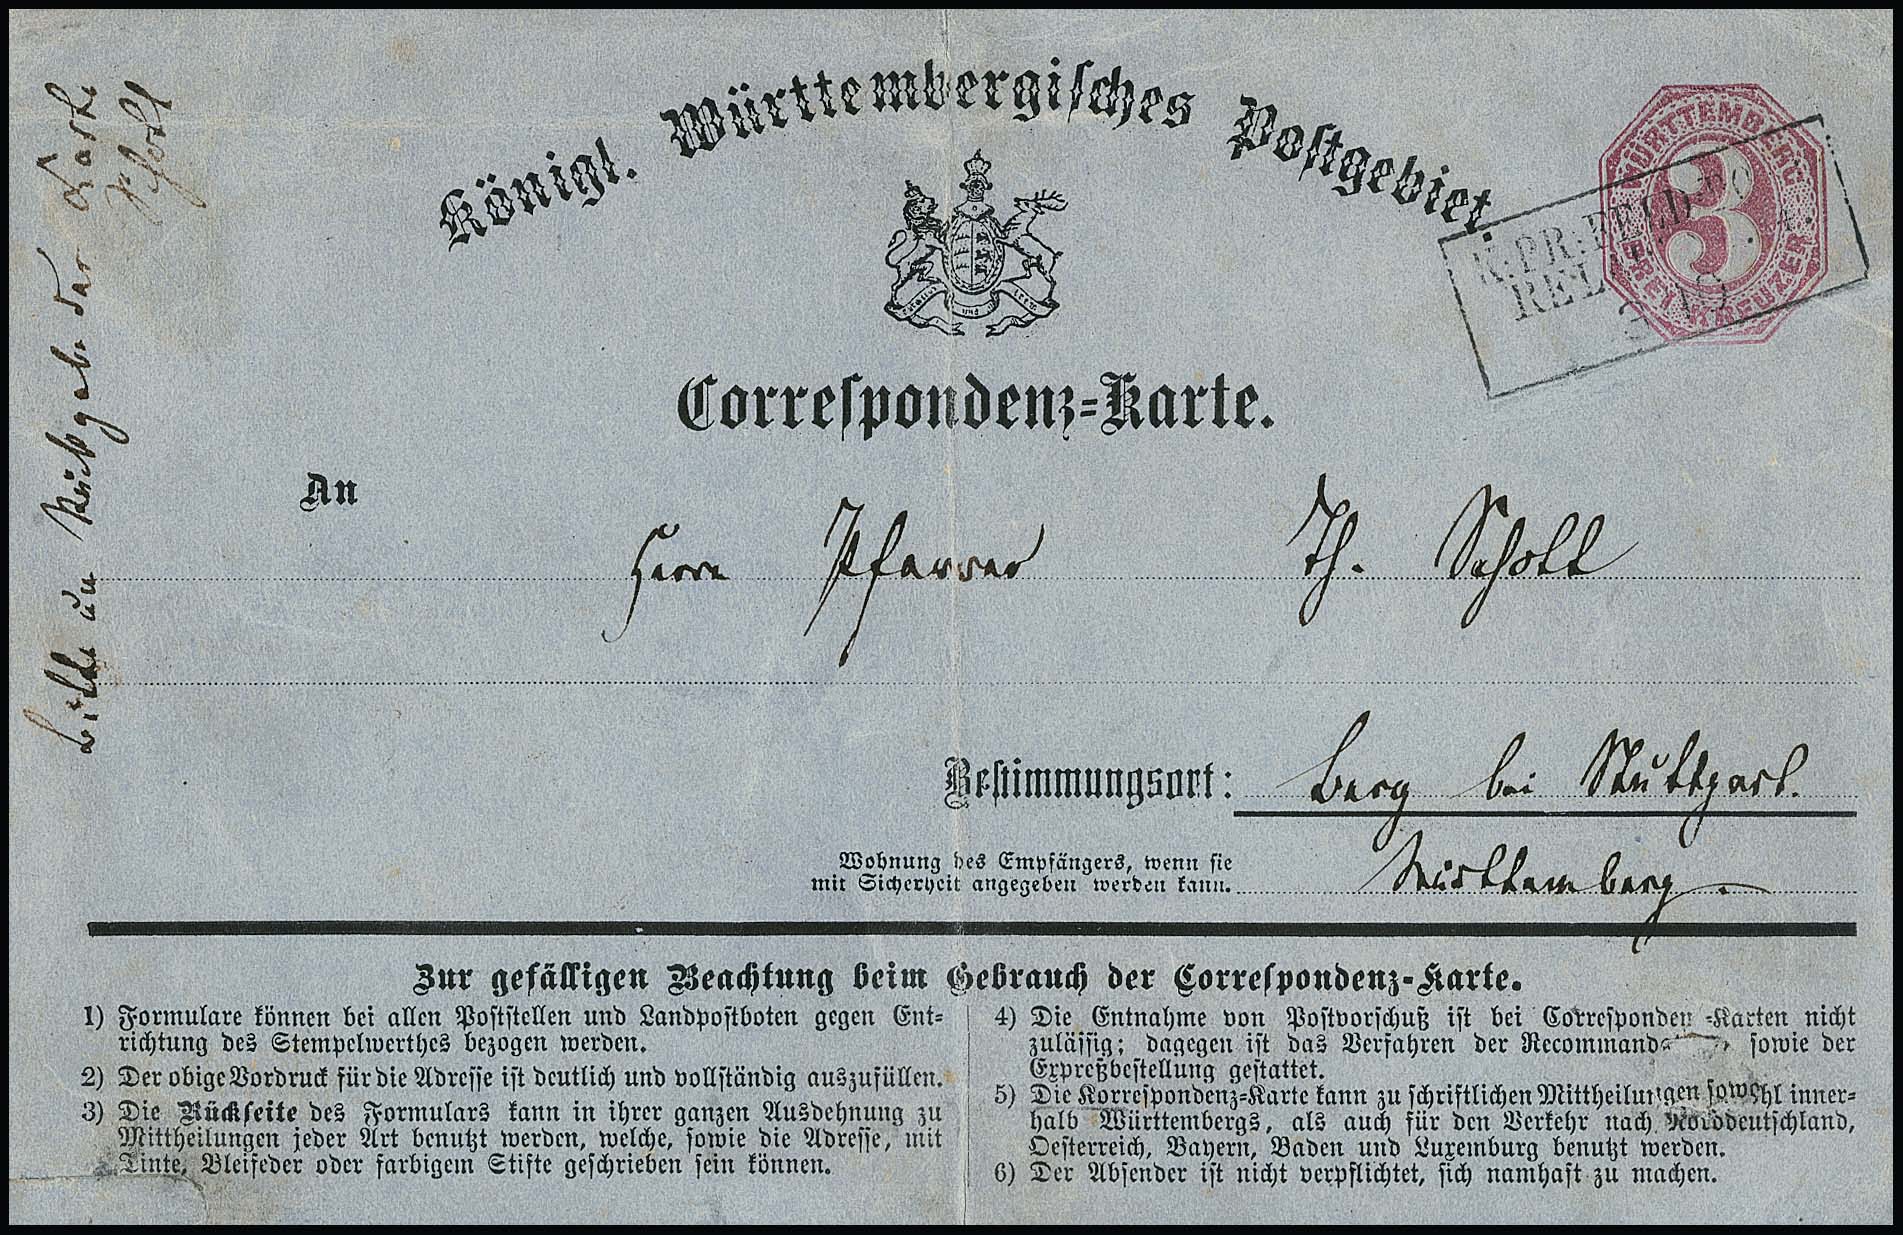 Königl. Württembergisches Postgebiet.
WÜRTTEMBERG
3
DREI KREUZER
K. PR. FELD-PO
REL
3 10
furchtlos und trew
Correspondenz=Karte.
An
Herrn Pfarrer Th. Schott
Bestimmungsort: Berg bei Stuttgart.
Wohnung des Empfängers, wenn sie
mit Sicherheit angegeben werden kann.
Württemberg.
Bitte um Rückgabe der Karte
Schott
Zur gefälligen Beachtung beim Gebrauch der Correspondenz-Karte.
1) Formulare können bei allen Poststellen und Landpostboten gegen Ent=
richtung des Stempelwerthes bezogen werden.
2) Der obige Vordruck für die Adresse ist deutlich und vollständig auszufüllen.
3) Die Rückseite des Formulars kann in ihrer ganzen Ausdehnung zu
Mittheilungen jeder Art benutzt werden, welche, sowie die Adresse, mit
Tinte, Bleifeder oder farbigem Stifte geschrieben sein können.
4) Die Entnahme von Postvorschuß ist bei Corresponden -Karten nicht
zulässig; dagegen ist das Verfahren der Recommanda sowie der
Expreßbestellung gestattet.
5) Die Korrespondenz=Karte kann zu schriftlichen Mittheilungen sowohl inner=
halb Württembergs, als auch für den Verkehr nach Norddeutschland,
Oesterreich, Bayern, Baden und Luxemburg benutzt werden.
6) Der Absender ist nicht verpflichtet, sich namhaft zu machen.